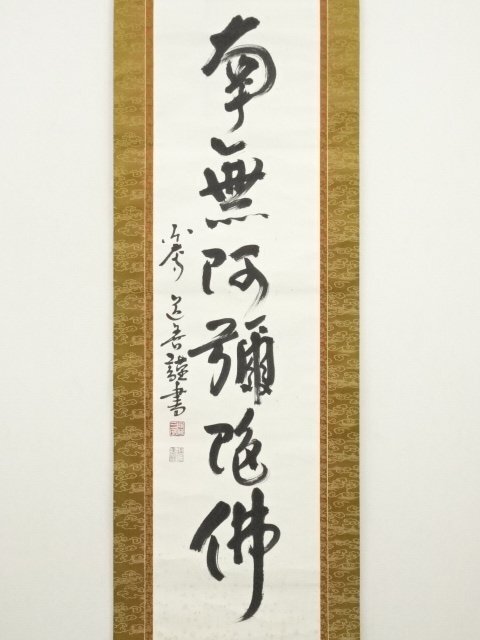 南無阿彌陀佛
道香謹書